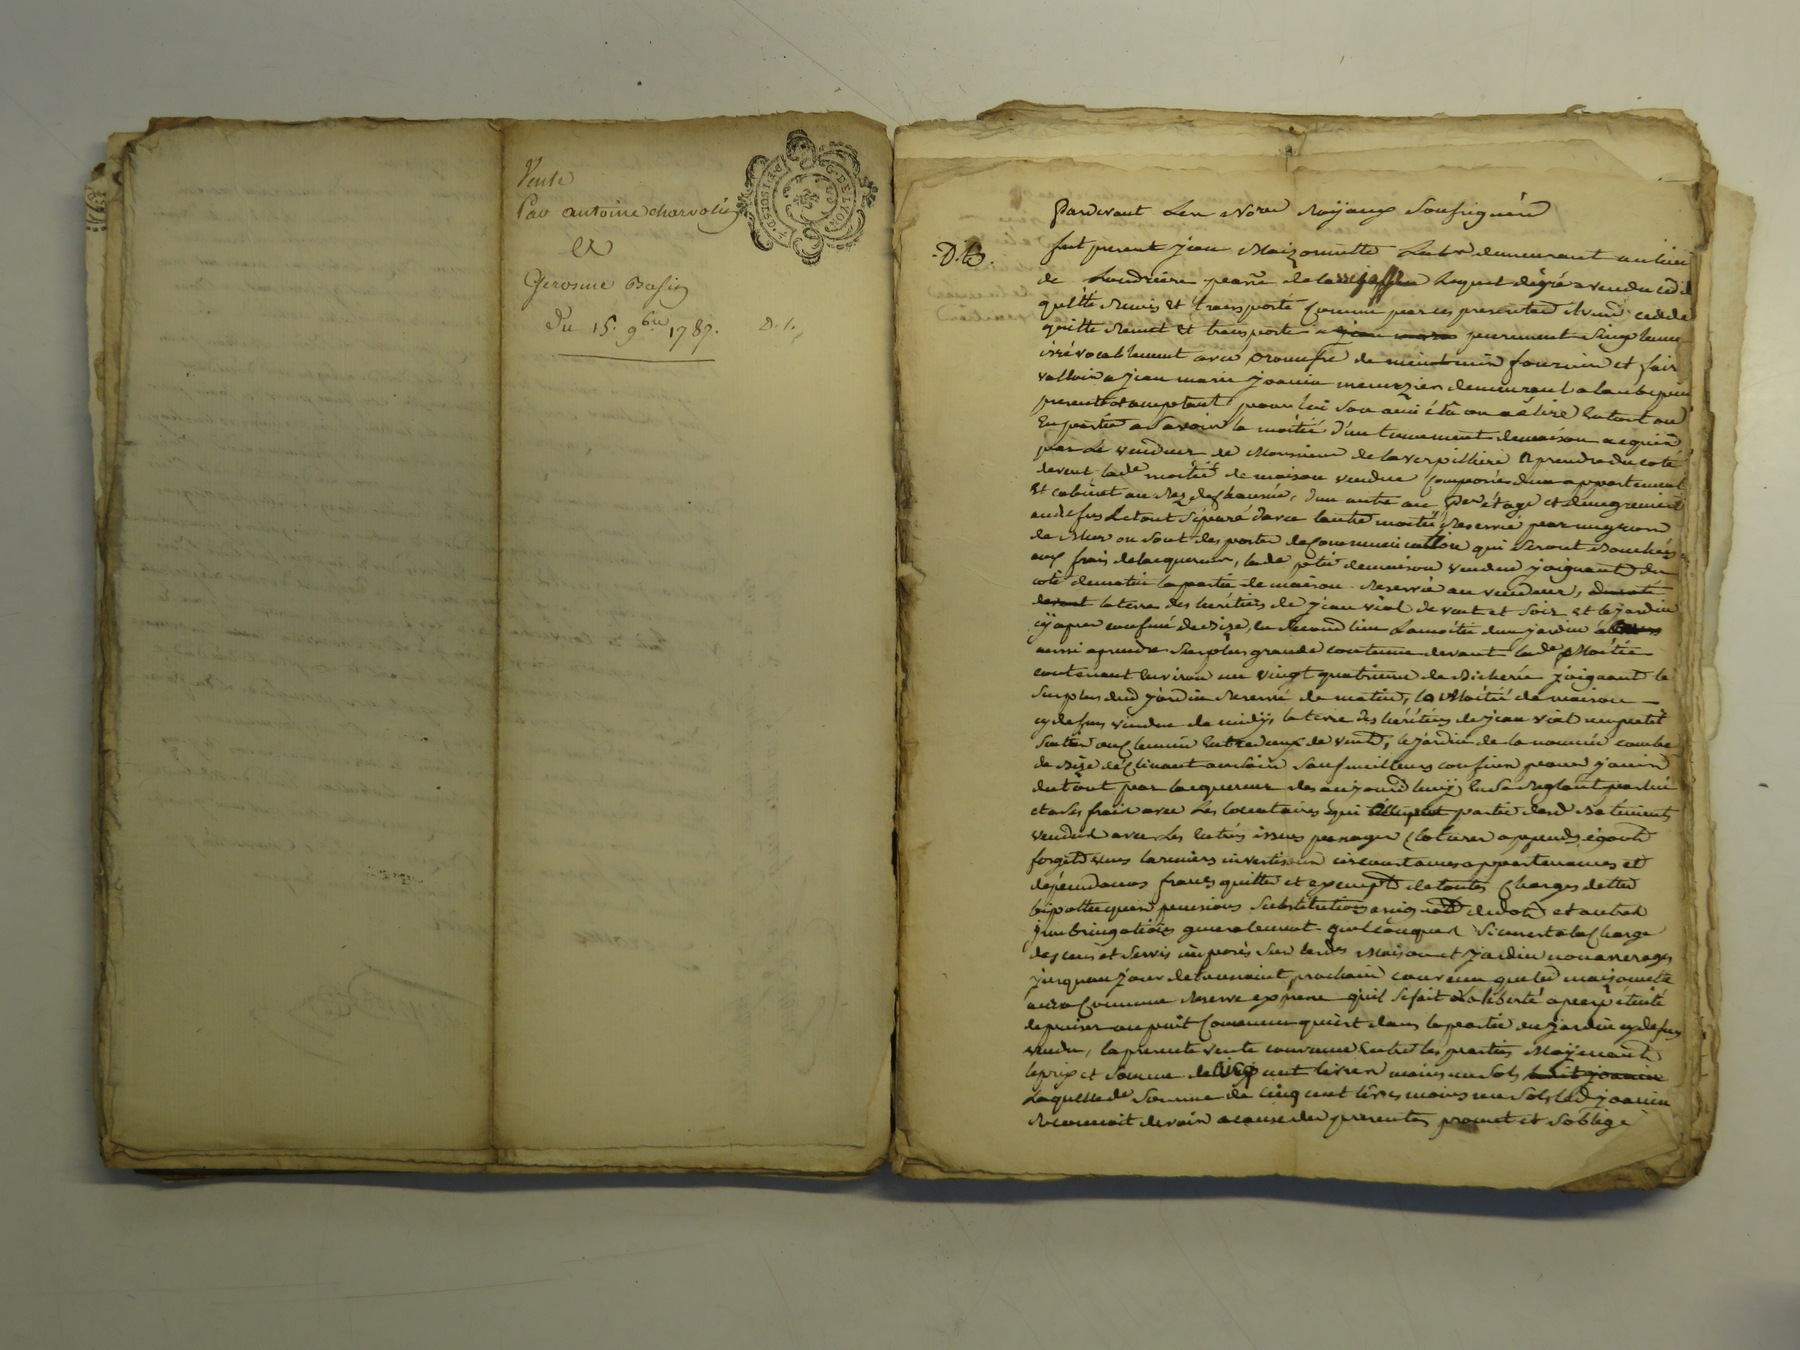 Vente
Par antoine charvolin
et
Gerosme Basin
Du 15. 9bre 1787. D. t.
G. DE LYON
Pardevant Les Nores Royaux Soussignés
D. ts.
fut present jean Maizonnette Labr demeurant au lieu
de parre de Lequel de gré a vendu cedé
quitté Remis et transporté Comme par ces presentes il vend cedde
quitte Remet et transporte a purement Simplement
irrévocablement avec promesse de maintenir fournir et faire
valloir a jean marie joanin menuzier demeurant a laubepin
present et acceptant pour lui Son ami élu ou a élire En tout ou
En partie a Savoir la moitié d'un tennement de maison acquis
par Le vendeur de Monsieur de laverpilliere a prendre du coté
devent, lade moitié de maison vendue Composées d'un appartement
Et cabinet au Rez de Chaussée, d'un autre au per étage et d'un grenier
au desus Letout Séparé d'avec lautre moitié Reservée par un
de Mur ou Sont des portes de Communication qui Seront Bouchées
aux frais de lacquereur, lade ptie de maison vendue joignant du
coté de matin la partie de maison Reservée au vendeur, du coté
devent la terre des héritiers de jean vial de vent et Soir et le jardin
cy apres confiné de Bize, En Second lieu La moitié d'un jardin
aussi a prendre Sa plus grande contenue devant lade Moitié
contenant Environ un vingt quatrieme de Bicherée joignant le
Surplus dud jardin Reservé de matin, la Moitié de maison
cy desus vendue de midy, la terre des héritiers de jean vial un petit
Sentier ou Chemin Entre deux de vent, le jardin de la nommée combe
de Bize déClinant au Soir Sauf meilleurs confins pour jouir
du tout par lacquereur des aujourd'huy En Se Reglant par lui
et a Ses frais avec Les locataires qui partie desd Batiments
vendus avec Les Entrées issues passages Clotures appends égouts
forgets vues larmiers investisons circonstances appartenances et
dépendances francs quittes et exempts de toutes Charges dettes
hipotheques pensions Substitutions de dot et autres
generalement quelconques Si ce n'est a la Charge
des cens et Servis imposés Sur lesds Maison et jardin nonarrerages
jusqu'au jour de prochain convenu que led maizonette
aura Comme Reserve expresse qu'il Se fait La liberté a perpétuité
de puiser au puit Commun qui est dans la partie du jardin cy desus
vendu, la presente vente convenue Entre les parties Moyenant
le prix et Somme de cinq cent livres moins un Sols
Laquelle de Somme de cinq cent livres moins un Sols led joanin
Reconnoit devoir a cause des presentes promet et S'oblige